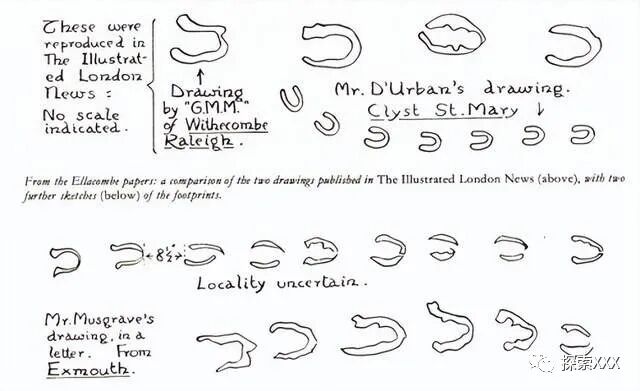 These were
reproduced in
The Illustrat-
ed London
News :
No scale
indicated.
Drawing
by "G.M.M."
of Withecombe
Raleigh.
Mr. D'Urban's drawing.
Clyst St. Mary
From the Ellacombe papers: a comparison of the two drawings published in The Illustrated London News (above), with two
further sketches (below) of the footprints.
8½"
Locality uncertain.
Mr. Musgrave's
drawing, in a
letter. From
Exmouth.
探索XXX